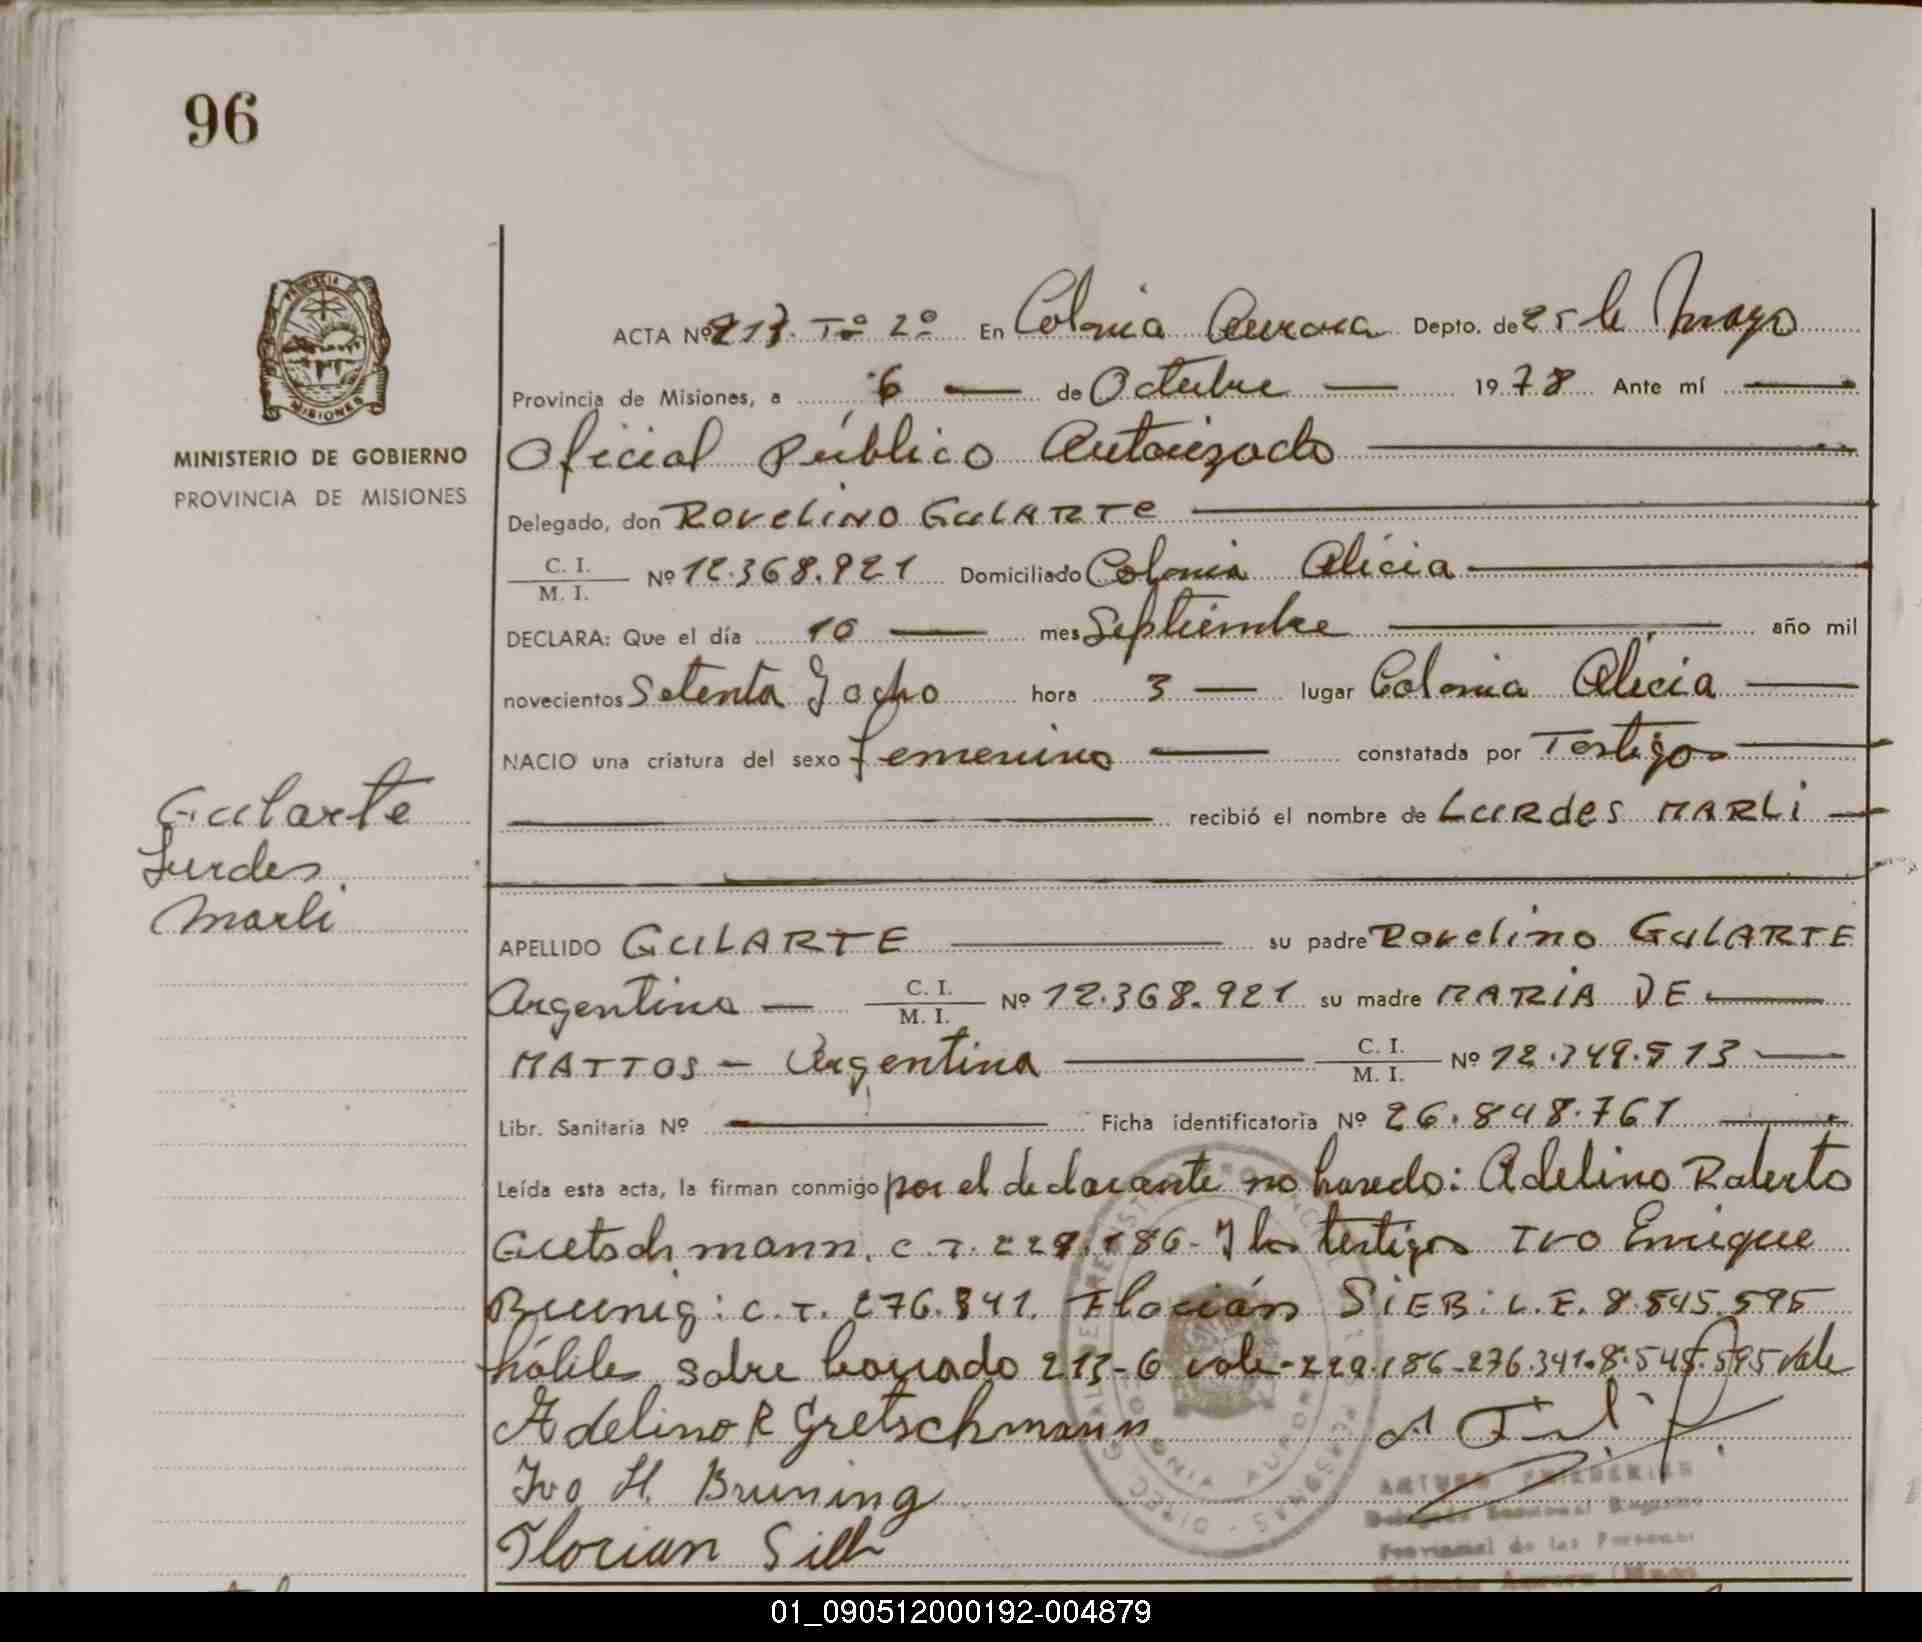 96
PROVINCIA DE
MISIONES
MINISTERIO DE GOBIERNO
PROVINCIA DE MISIONES
ACTA Nº 213. Tº 2º En Colonia Aurora Depto. de 25 de Mayo
Provincia de Misiones, a 6 — de Octubre — 1978 Ante mí —
Oficial Público Autorizado —
Delegado, don ROVELINO GULARTE —
C. I.
M. I. Nº 12.368.921 Domiciliado Colonia Alicia —
DECLARA: Que el día 10 — mes Septiembre — año mil
novecientos Setenta y ocho hora 3 — lugar Colonia Alicia —
NACIO una criatura del sexo femenino — constatada por Testigos —
— recibió el nombre de LURDES MARLI —
Gularte
Lurdes
Marli
APELLIDO GULARTE — su padre ROVELINO GULARTE
Argentino — C. I.
M. I. Nº 12.368.921 su madre MARIA DE —
MATTOS — Argentina — C. I.
M. I. Nº 12.349.513 —
Libr. Sanitaria Nº — Ficha identificatoria Nº 26.848.761 —
Leída esta acta, la firman conmigo por el declarante no haserlo: Adelino Roberto
Gretschmann. C.I. 229.186- y los testigos IVO Enrique
Bruning: C.I. 276.341. Florián SIEB: L.E. 8.545.595
hábiles sobre borrado 213-6 vale-229.186-276.341.8.545.595 vale
Adelino R Gretschmann
Ivo H. Bruning
Florian Sieb
ARTURO
Delegado Seccional Registro
Provincial de las Personas
Colonia Aurora
01_090512000192-004879